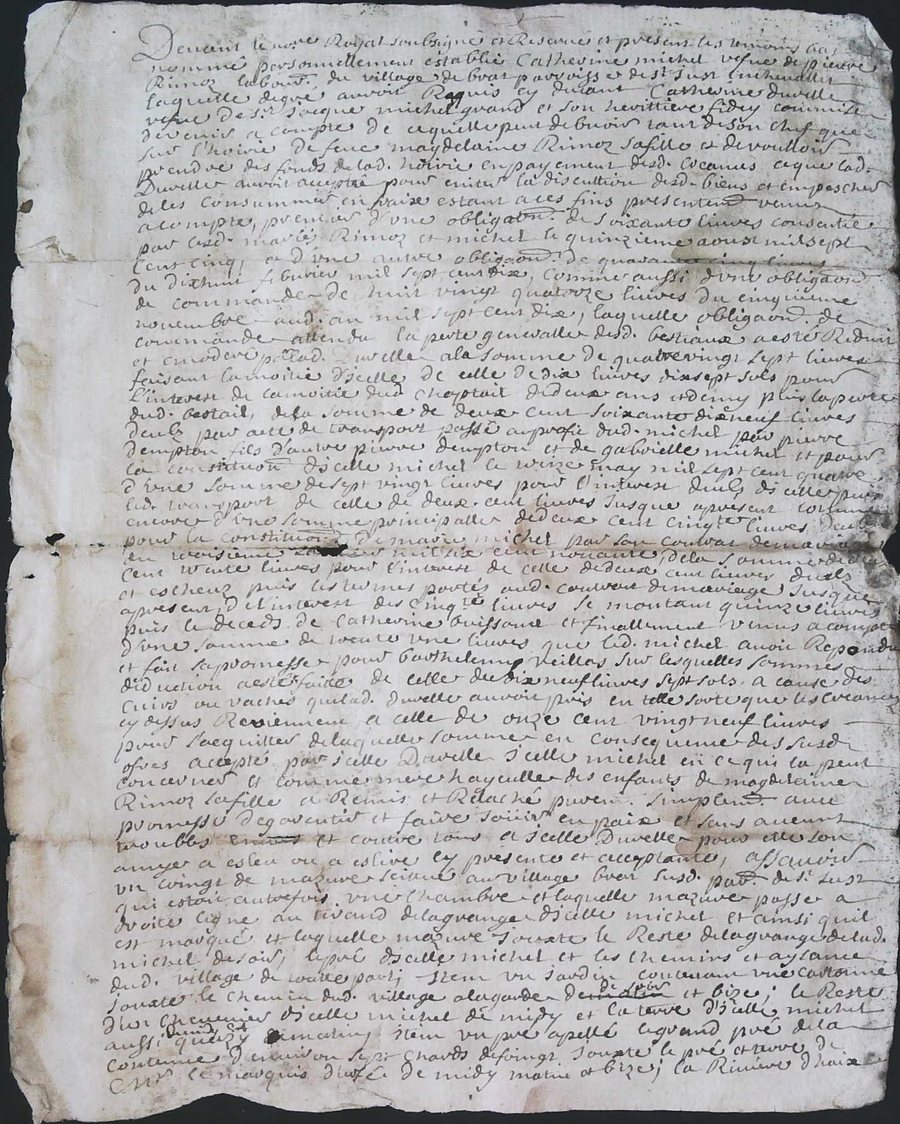 Devant le nore Royal soubsigné et Reservé et present les temoins bas
nommé personnellement establie Catherine michel vefve de pierre
Rimoz labour. du village de brat parroisse de st Just
laquelle de gré avoir Requis cy devant Catherine duvelle
vefve de sr Jacque michel grand et son herittiere
devenir a compte de ce quelle peut debvoir tant de son chef que
sur l'hoirie de feue magdelaine Rimoz sa fille et de voulloir
prendre des fonds de lad. hoirie en payement desd. ce que lad.
Duvelle auroit accepté pour eviter la discution desd. biens et empescher
de les consummer en fraix estant a ces fins presentem. venus
a compte, premier d'une obligaon. de soixante livres consentie
par lesd. mariés Rimoz et michel le quinzieme aoust mil sept
cent cinq, a d'une autre obligaon. de quarante cinq livres
du dixhuit febvrier mil sept cent dix, comme aussi d'une obligaon
de commande de huit vingt quatorze livres du cinquieme
novembre aud. an mil sept cent dix, laquelle obligaon. de
commande attendu la perte generalle desd. bestiaux a esté Reduit
et moderé par lad. Duvelle a la somme de quatrevingt sept livres
faisant la moitié d'icelle de celle de dix livres dixsept sols pour
l'interest de la moitié dud. chaptail de deux ans et demy puis la perte
dud. bestail, de la somme de deux cent soixante dixneuf livres
deubz par acte de transport passé au profit dud. michel par pierre
dempton fils d'autre pierre dempton et de gabrielle michel et pour
la constitution d'icelle michel le may mil sept cent quatre
d'une somme de sept vingt livres pour l'interest deubz d'icelle puis
led. transport de celle de deux cent livres Jusque a present comme
encore d'une somme principalle de deux cent cinqte livres deub
pour la constitution de marie michel par son contrat de mariage
en troisieme mil six cent nonante, de la somme de
cent trente livres pour l'interest de celle de deux cent livres deubz
et escheuz puis les termes portés aud. contrat de mariage Jusque
a present, d'el interest des cinqte livres se montant quinze livres
puis le deceds de Catherine buissonet et finallement venus a compte
d'une somme de trente une livres que led. michel avoit Repondu
et fait sa promesse pour barthelemy veillas sur lesquelles sommes
deduction a esté faite de celle de dixneuf livres sept sols, a cause des
cuirs ou vaches quelad. duvelle avoit pris en telle sorte que les
cy dessus Reviennent a celle de onze cent vingt neuf livres
pour s'acquitter de laquelle somme en consequence des susd.
ofres accepté par icelle Duvelle Icelle michel en ce qui la peut
concerner et comme mere hayeulle des enfants de magdelaine
Rimoz sa fille a Remis et Relaché purem. simplem. avec
promesse de garentir et faire Jouir en paix et sans aucun
troubles envers et contre tous a Icelle Duvelle pour elle son
amy a esleu ou a eslire cy presente et acceptante, assavoir
un coingt de mazure scitué au village brat susd. par. de st Just
qui estoit autrefois une chambre et laquelle mazure passe a
droite ligne au tirand de la grange d'icelle michel et ainsi qu'il
est marqué et laquelle mazure Jouxte le Reste de la grange de lad.
michel de soir, le pré d'icelle michel et les chemins et aysance
dud. village de toutte part; Item un Jardin contenant une cartonne
Jouxte le chemin dud. village a la garde de soir et bize; le Reste
d'un chenevier d'icelle michel de midy et la terre d'icelle michel
aussi de matin; Item un pré apellé le grand pré de la
contenue d'environ sept chards de foingt Jouxte le pré et terre de
Mr le marquis d'urfé de midy matin et bize; la Riviere d'haix